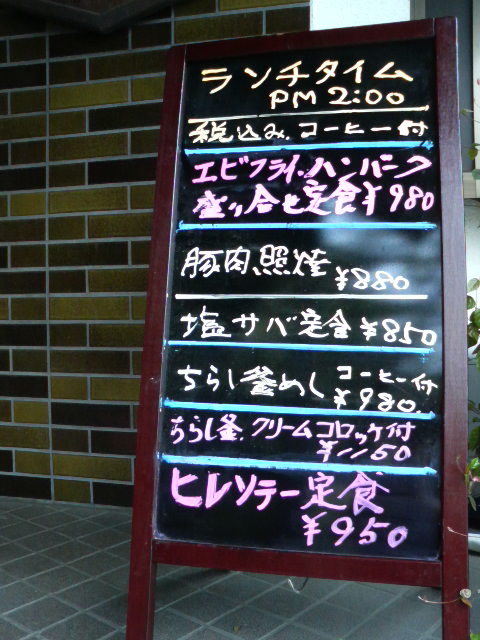 ランチタイム
PM 2:00
税込み.コーヒー付
エビフライ.ハンバーク
盛り合せ定食¥980
豚肉照焼
¥880
塩サバ定食 ¥850
ちらし釜めし コーヒー付
¥980.
ちらし釜.クリームコロッケ付
¥1150
ヒレソテー定食
¥950